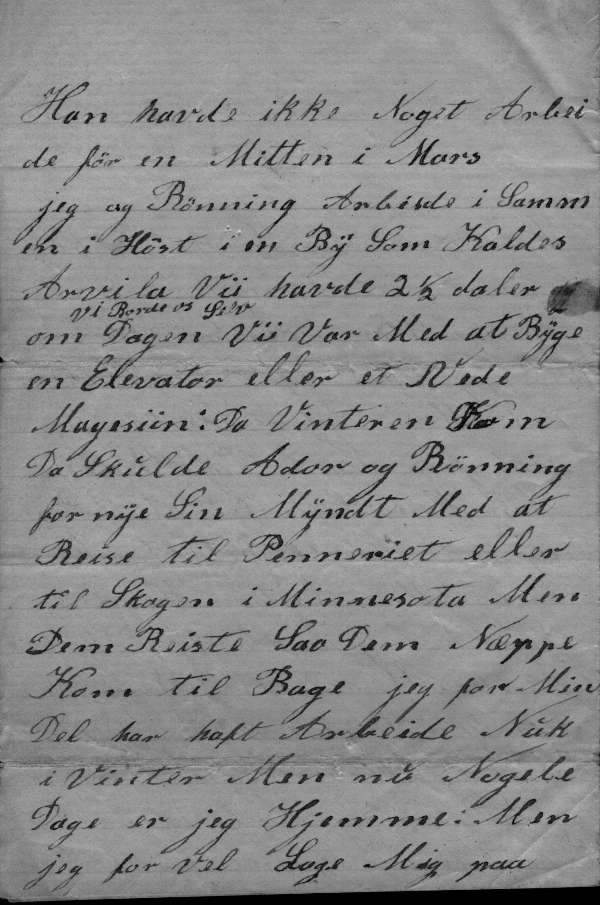 Han havde ikke Noget Arbei
de för en Mitten i Mars
jeg og Rönning Arbeide i Samm
en i Höst i en Bÿ Som Kaldes
Arvila Vii havde 2½ daler
Vi Borde os Selv
om Dagen Vii Var Med at Bÿge
en Elevator eller et Vede
Magesiin: Da Vinteren Kom
Da Skulde Ador og Rönning
fornÿe Sin Mÿndt Med at
Reise til Penneriet eller
til Skogen i Minnesota Men
Dem Reiste Saa Dem Næppe
Kom til Bage jeg for Min
Del har haft Arbeide Nŭk
i Vinter Men nŭ Nogele
Dage er jeg Hjemme: Men
jeg for vel Lage Mig paa